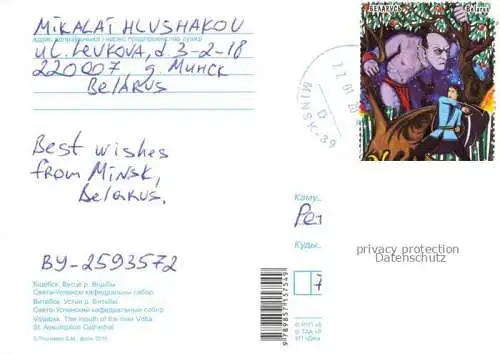 MIKALAI HLUSHAKOU
адрас адпраўшчыка / адрес предприятия связи
ul. Levkova, d. 3-2-18
220007, g. Минск
Belarus
BELARUS
Belarus
MINSK-39
Best wishes
from Minsk,
Belarus.
Каму
Куды
privacy protection
Datenschutz
BY-2593572
Віцебск. Вусце р. Віцьбы
Свята-Успенскі кафедральны сабор
Витебск. Устье р. Витьбы
Свято-Успенский кафедральный собор
Vitsiebsk. The mouth of the river Vitba
St. Assumption Cathedral
9 789857 157549